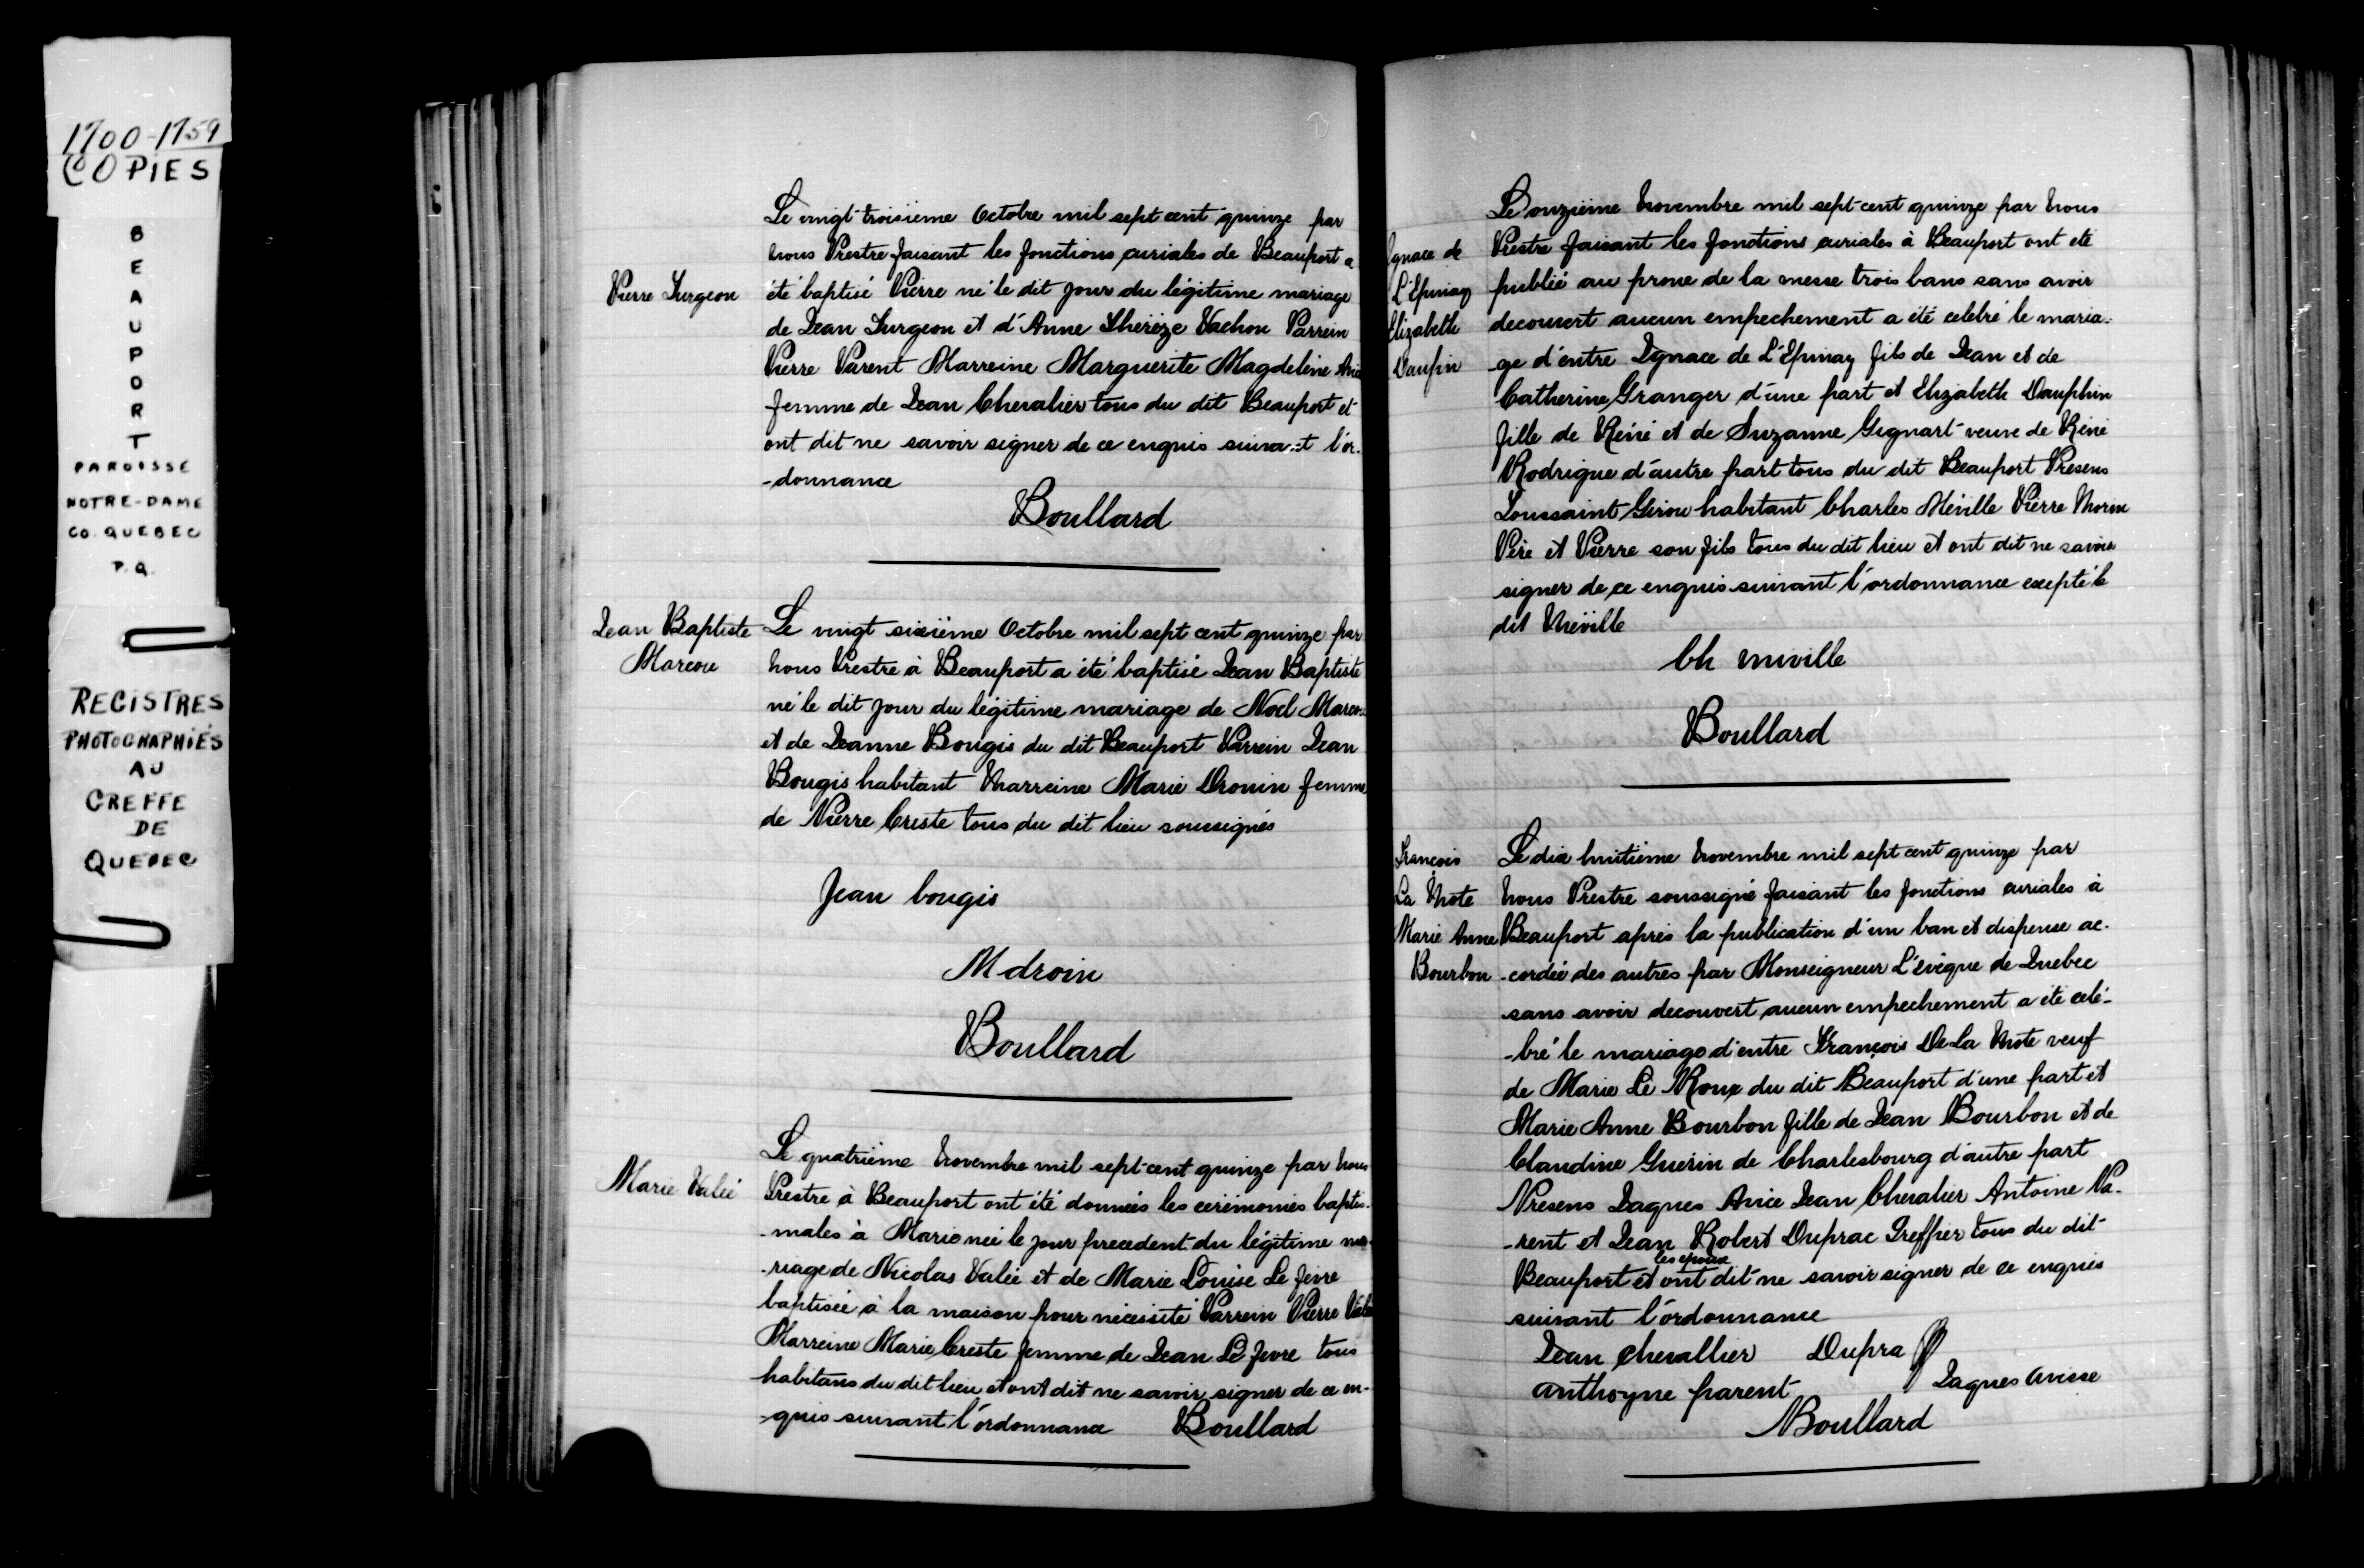 1700-1759
COPIES
BEAUPORT
PAROISSE
NOTRE-DAME
CO. QUEBEC
P.Q.
REGISTRES
PHOTOGRAPHIÉS
AU
GREFFE
DE
QUEBEC
Pierre Turgeon
Le vingt-troisième Octobre mil sept cent quinze par
nous Prestre faisant les fonctions curiales de Beauport a
été baptisé Pierre né le dit jour du légitime mariage
de Jean Turgeon et d'Anne Thérèze Vachon Parrein
Pierre Parent Marreine Marguerite Magdeleine Avice
femme de Jean Chevalier tous du dit Beauport et
ont dit ne savoir signer de ce enquis suivant l'or-
-donnance
Boullard
Jean Baptiste
Marcou
Le vingt sixième Octobre mil sept cent quinze par
nous Prestre à Beauport a été baptisé Jean Baptiste
né le dit jour du légitime mariage de Noel Marcou
et de Jeanne Bougis du dit Beauport Parrein Jean
Bougis habitant Marreine Marie Drouin femme
de Pierre Creste tous du dit lieu soussignés
Jean bougis
M droin
Boullard
Marie Valée
Le quatrième Novembre mil sept-cent quinze par Nous
Prestre à Beauport ont été données les cérémonies baptis-
-males à Marie née le jour precedent du légitime ma-
-riage de Nicolas Valée et de Marie Louise Le fevre
baptisée à la maison pour nécessité Parrein Pierre Valée
Marreine Marie Creste femme de Jean Le fevre tous
habitans du dit lieu et ont dit ne savoir signer de ce en-
-quis suivant l'ordonnance Boullard
Ignace de
L'Epinay
Elizabeth
Daufin
Le onzième Novembre mil sept-cent quinze par Nous
Prestre faisant les fonctions curiales à Beauport ont été
publié au prone de la messe trois bans sans avoir
decouvert aucun empechement a été celebré le maria-
ge d'entre Ignace de L'Epinay fils de Jean et de
Catherine Granger d'une part et Elizabeth Dauphin
fille de Réné et de Suzanne Gignart veuve de Réné
Rodrigue d'autre part tous du dit Beauport Presens
Toussaint Girou habitant Charles Méville Pierre Morin
Père et Pierre son fils tous du dit lieu et ont dit ne savoir
signer de ce enquis suivant l'ordonnance excepté le
dit Méville
Ch miville
Boullard
François
La Mote
Marie Anne
Bourbon
Le dix huitième Novembre mil sept cent quinze par
Nous Prestre soussigné faisant les fonctions curiales à
Beauport après la publication d'un ban et dispense ac-
-cordée des autres par Monseigneur L'évêque de Quebec
sans avoir decouvert aucun empechement a été célé-
-bré le mariage d'entre François De la Mote veuf
de Marie Le Roux du dit Beauport d'une part et
Marie Anne Bourbon fille de Jean Bourbon et de
Claudine Guerin de Charlesbourg d'autre part
Presens Jaques Avice Jean Chevalier Antoine Pa-
-rent et Jean Robert Duprac Greffier tous du dit
les epoux
Beauport et ont dit ne savoir signer de ce enquis
suivant l'ordonnance
Jean chevallier Dupra
anthoyne parent Jaques avisse
Boullard